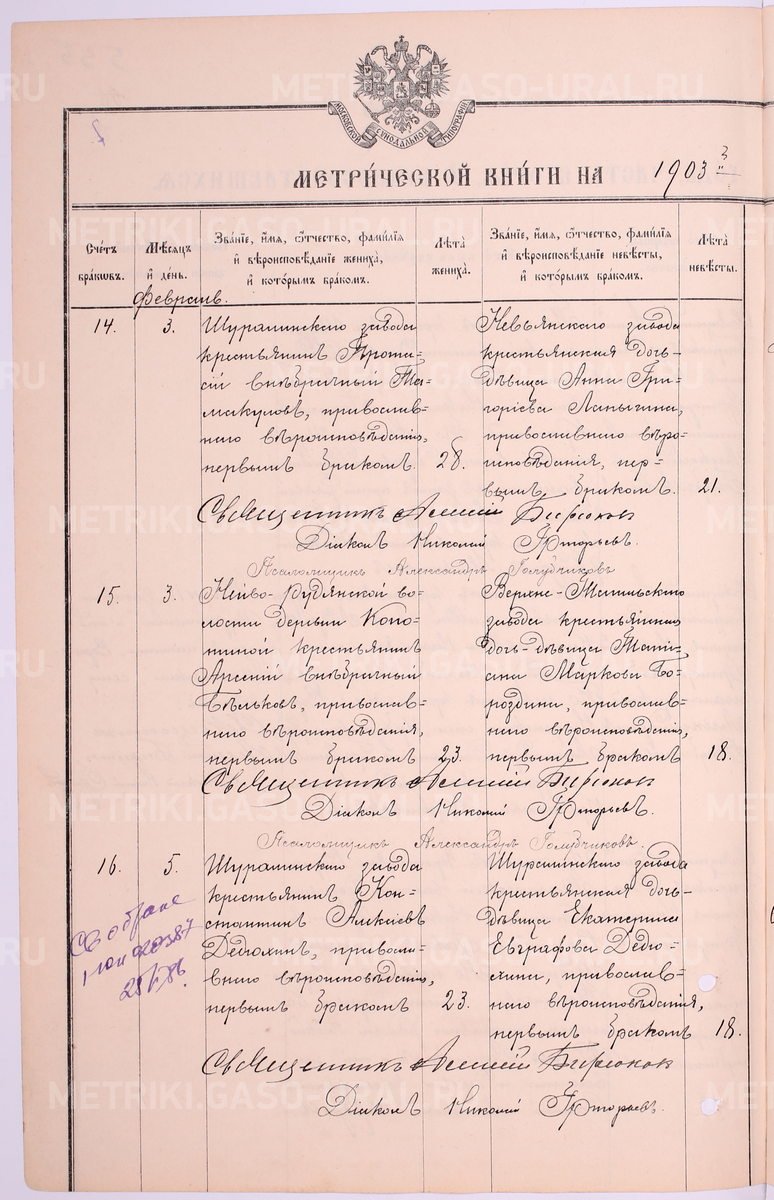 МОСКОВСКОЙ СѴНОДАЛЬНОЙ ТИПОГРАФІИ
МЕТРИ́ЧЕСКОЙ КНИ́ГИ НА 1903
Сче́тъ бра́ковъ.
Мѣ́сяцъ и҆ де́нь.
Зва́нїе, и҆́мя, ѻ҆́тчество, фами́лїя и҆ вѣроисповѣ́данїе жениха̀, и҆ кото́рымъ бра́комъ.
Лѣ̑та жениха̀.
Зва́нїе, и҆́мя, ѻ҆́тчество, фами́лїя и҆ вѣроисповѣ́данїе невѣ́сты, и҆ кото́рымъ бра́комъ.
Лѣ̑та невѣ́сты.
Февраль.
14. 3.
Шуралинскаго завода
крестьянинъ Прота-
сій внѣбрачный Та-
макуловъ, православ-
наго вѣроисповѣданія,
первымъ бракомъ. 28.
Невьянскаго завода
крестьянская дочь-
дѣвица Анна Гри-
горіева Лапыгина,
православнаго вѣро-
исповѣданія, пер-
вымъ бракомъ. 21.
Священникъ Бирюков
Діаконъ Николай Григорьевъ.
Псаломщикъ Александръ Голубчиковъ
15. 3.
Нейво-Рудянской во-
лости деревни Коно-
тиной крестьянинъ
Арсеній внѣбрачный
Бѣльковъ, православ-
наго вѣроисповѣданія,
первымъ бракомъ 23.
Верхне-Тагильскаго
завода крестьянина
дочь-дѣвица Таті-
ана Маркова Бо-
роздина, православ-
наго вѣроисповѣданія,
первымъ бракомъ 18.
Священникъ Бирюков
Діаконъ Николай Григорьевъ.
Псаломщикъ Александръ Голубчиковъ.
16. 5.
Шуралинскаго завода
крестьянинъ Кон-
стантинъ Алексѣевъ
Дедюхинъ, правосла-
внаго вѣроисповѣданія,
первымъ бракомъ 23.
Шуралинскаго завода
крестьянская дочь-
дѣвица Екатерина
Евграфова Дедю-
хина, православ-
наго вѣроисповѣданія,
первымъ бракомъ 18.
Св о браке
020387
Священникъ Бирюков
Діаконъ Николай Григорьевъ.
METRIKI.GASO-URAL.RU